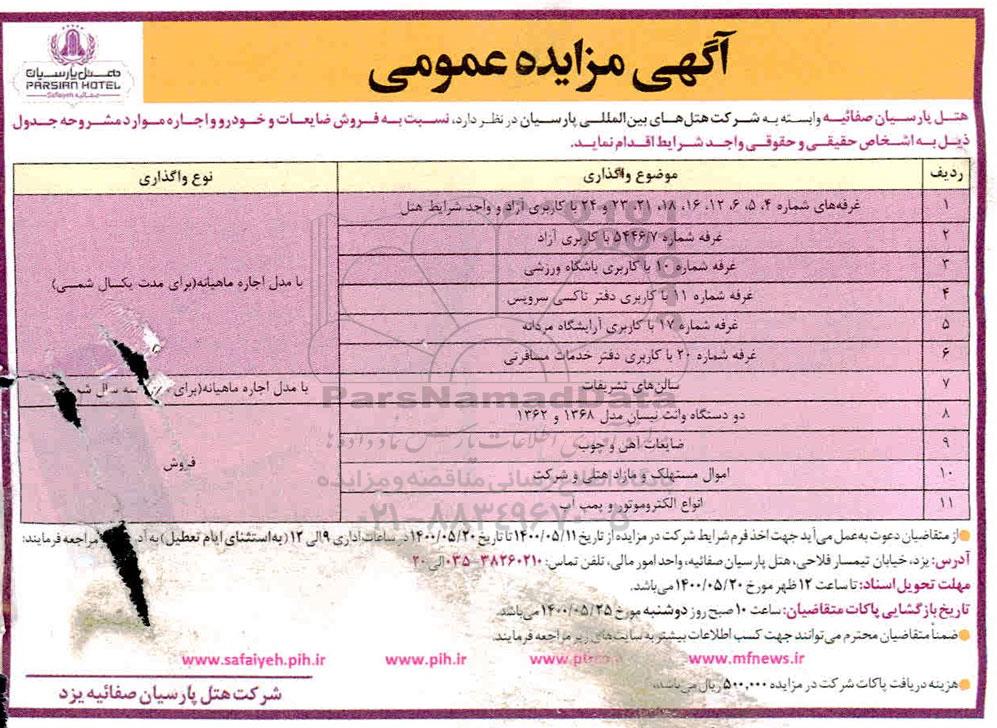 هتل پارسیان
PARSIAN HOTEL
Safaiyeh صفائیه
آگهی مزایده عمومی
هتل پارسیان صفائیه وابسته به شرکت هتل‌های بین‌المللی پارسیان در نظر دارد، نسبت به فروش ضایعات و خودرو و اجاره موارد مشروحه جدول
ذیل به اشخاص حقیقی و حقوقی واجد شرایط اقدام نماید.
ردیف موضوع واگذاری نوع واگذاری
۱ غرفه‌های شماره ۴، ۵، ۶، ۱۲، ۱۶، ۱۸، ۲۱، ۲۳ و ۲۴ با کاربری آزاد و واجد شرایط هتل
۲ غرفه شماره ۵۴۴۶/۷ با کاربری آزاد
۳ غرفه شماره ۱۰ با کاربری باشگاه ورزشی
با مدل اجاره ماهیانه(برای مدت یکسال شمسی)
۴ غرفه شماره ۱۱ با کاربری دفتر تاکسی سرویس
۵ غرفه شماره ۱۷ با کاربری آرایشگاه مردانه
۶ غرفه شماره ۲۰ با کاربری دفتر خدمات مسافرتی
۷ سالن‌های تشریفات با مدل اجاره ماهیانه(برای سه سال
ParsNamadData
۸ دو دستگاه وانت نیسان مدل ۱۳۶۸ و ۱۳۶۲
۹ ضایعات آهن و چوب
فروش
۱۰ اموال مستهلک و مازاد هتل و شرکت
۱۱ انواع الکتروموتور و پمپ آب
۰۲۱-۸۸۳۴۹۶۷۰-۵
از متقاضیان دعوت به عمل می‌آید جهت اخذ فرم شرایط شرکت در مزایده از تاریخ ۱۴۰۰/۰۵/۱۱ تا تاریخ ۱۴۰۰/۰۵/۲۰ در ساعات اداری ۹ الی ۱۲ (به استثنای ایام تعطیل) به مراجعه فرمایند:
آدرس: یزد، خیابان تیمسار فلاحی، هتل پارسیان صفائیه، واحد امور مالی، تلفن تماس: ۳۸۲۶۰۲۱۰-۰۳۵ الی ۲۰
مهلت تحویل اسناد: تا ساعت ۱۲ ظهر مورخ ۱۴۰۰/۰۵/۲۰ می‌باشد.
تاریخ بازگشایی پاکات متقاضیان: ساعت ۱۰ صبح روز دوشنبه مورخ ۱۴۰۰/۰۵/۲۵ می‌باشد.
ضمناً متقاضیان محترم می‌توانند جهت کسب اطلاعات بیشتر به سایت‌های زیر مراجعه فرمایند.
www.mfnews.ir www.pih.ir www.safaiyeh.pih.ir
هزینه دریافت پاکات شرکت در مزایده ۵۰۰,۰۰۰ ریال می‌باشد.
شرکت هتل پارسیان صفائیه یزد